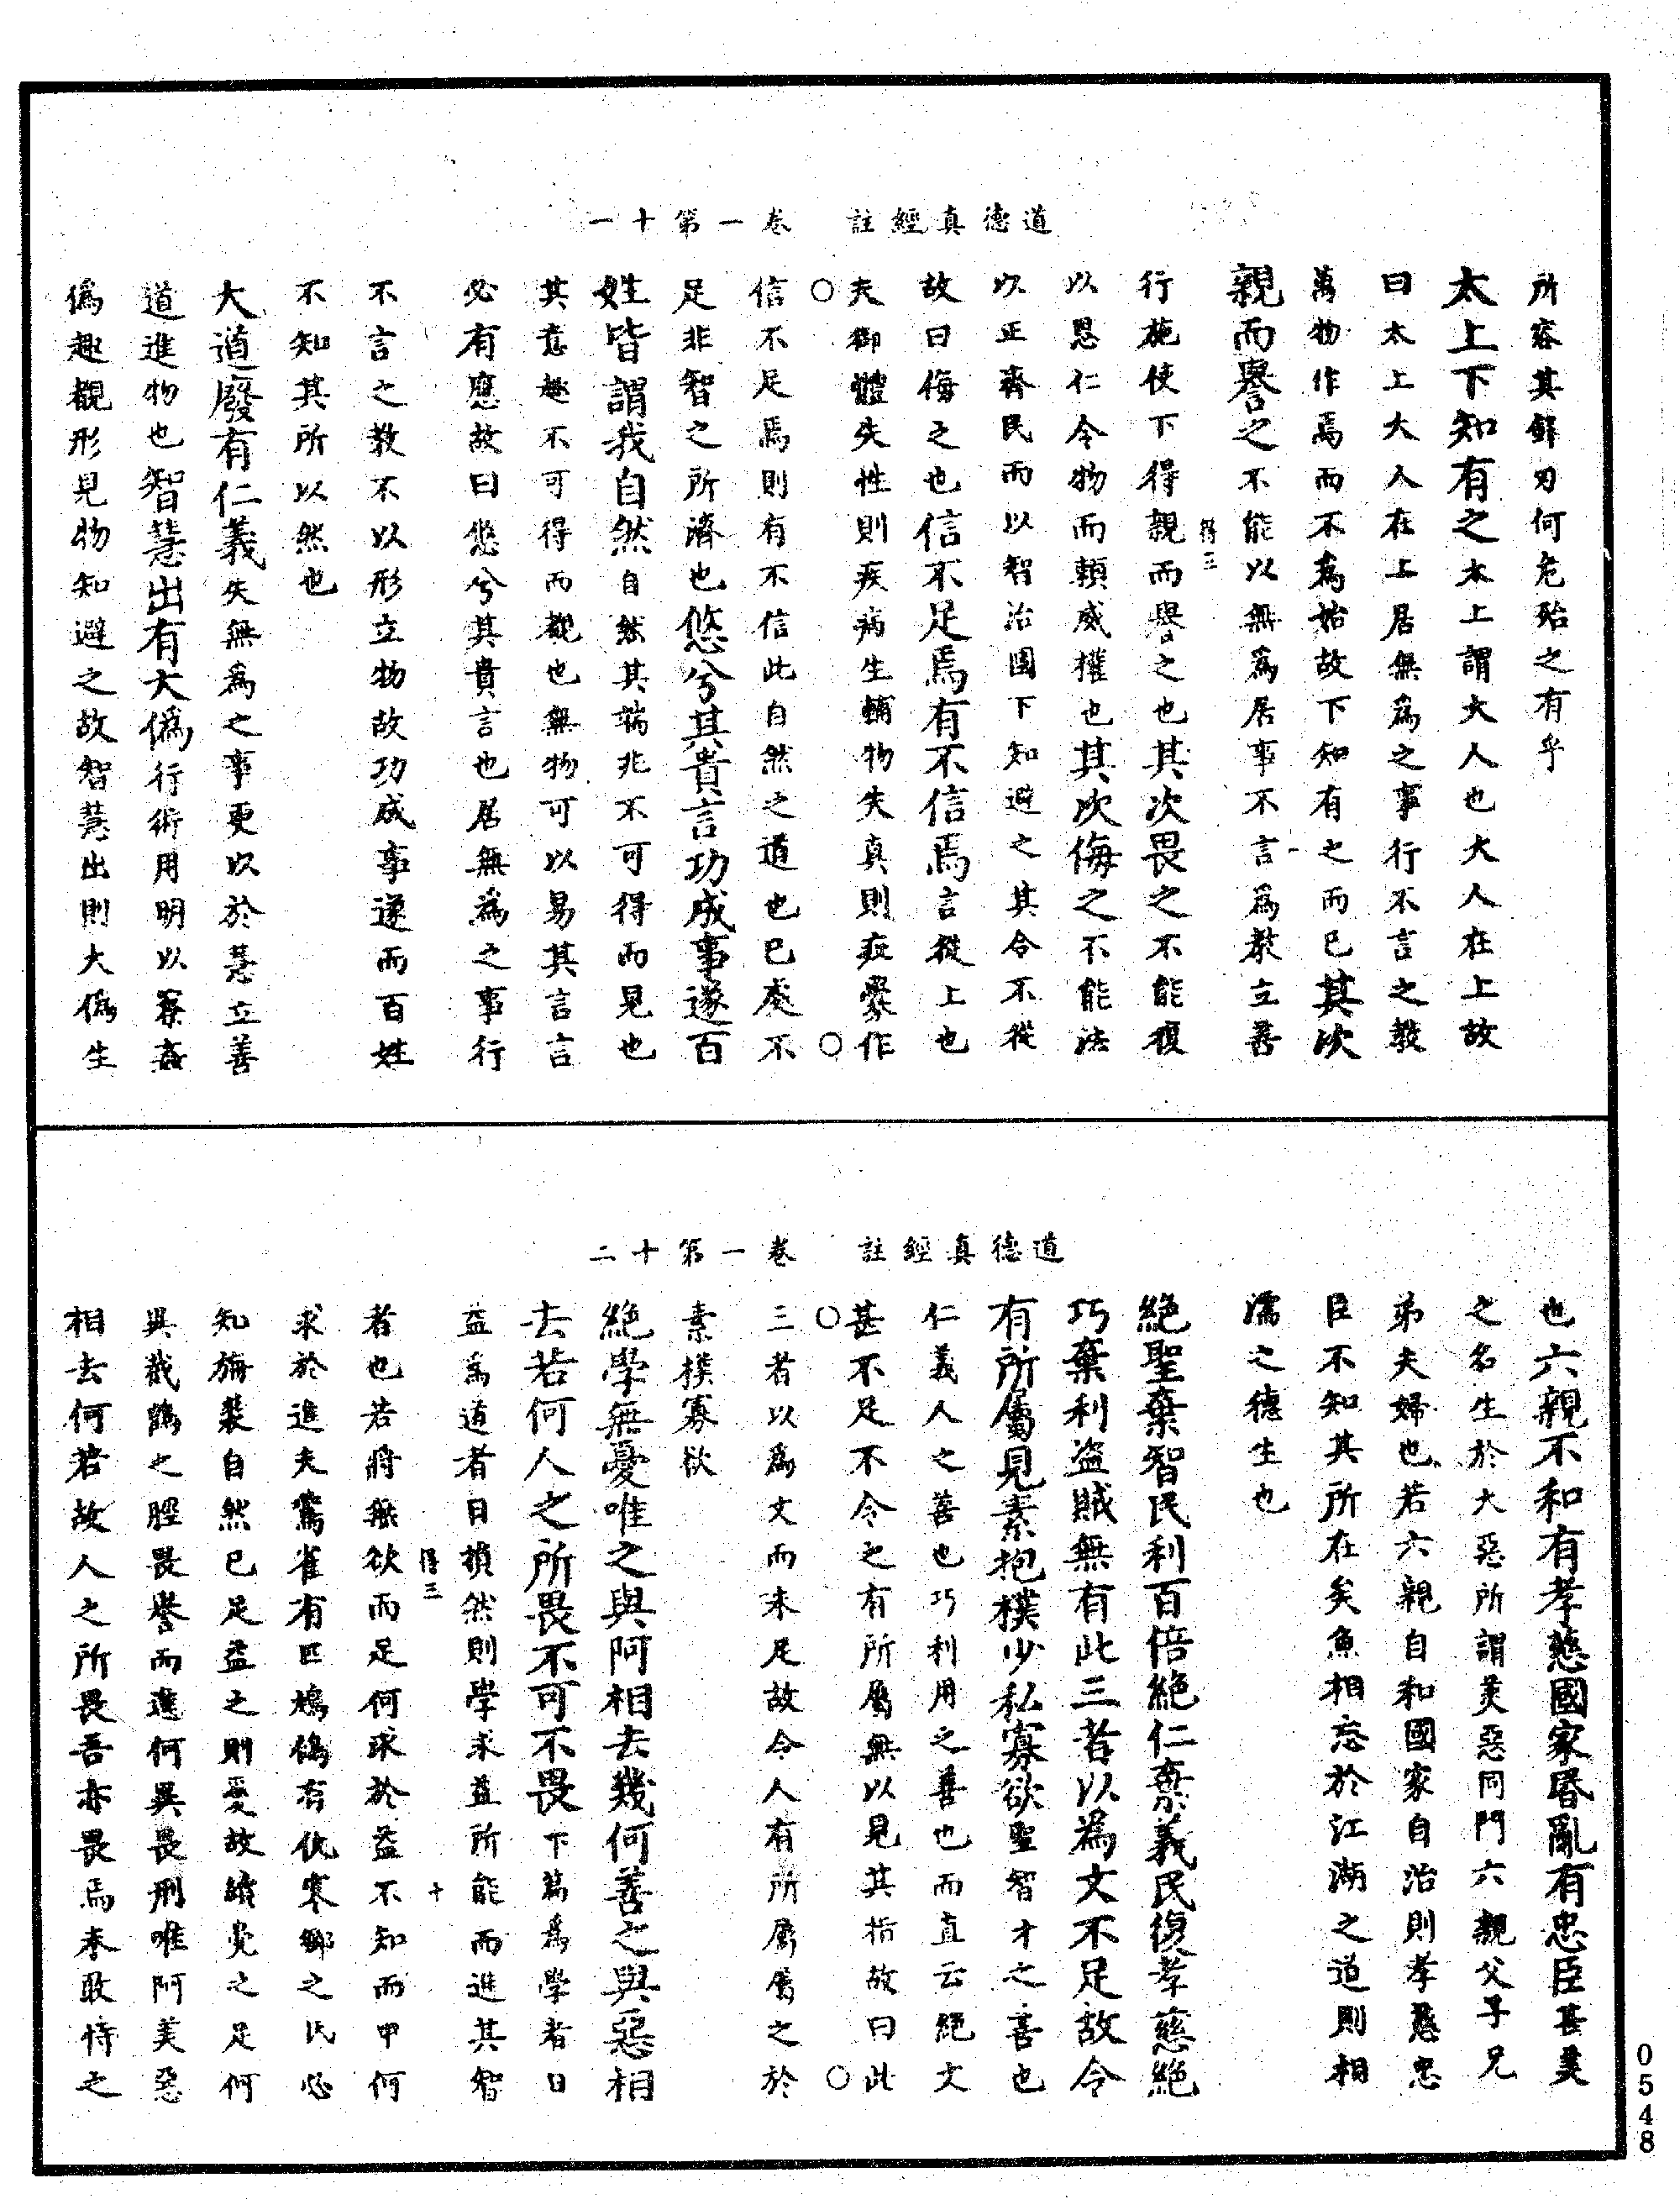 道德真經註　卷一第十一
所容其鋒刃何危殆之有乎
太上下知有之太上謂大人也大人在上故
曰太上大人在上居無為之事行不言之教
萬物作焉而不為始故下知有之而已其次
親而譽之不能以無為居事不言為教立善
得三
行施使下得親而譽之也其次畏之不能復
以恩仁令物而賴威權也其次侮之不能法
以正齊民而以智治國下知避之其令不從
故曰侮之也信不足焉有不信焉言從上也
夫御體失性則疾病生輔物失真則疵釁作
信不足焉則有不信此自然之道也已處不
足非智之所濟也悠兮其貴言功成事遂百
姓皆謂我自然自然其端兆不可得而見也
其意趣不可得而覩也無物可以易其言言
必有應故曰悠兮其貴言也居無為之事行
不言之教不以形立物故功成事遂而百姓
不知其所以然也
大道廢有仁義失無為之事更以於慧立善
道進物也智慧出有大偽行術用明以察姦
偽趣覩形見物知避之故智慧出則大偽生
道德真經註　卷一第十二
也六親不和有孝慈國家昏亂有忠臣甚美
之名生於大惡所謂美惡同門六親父子兄
弟夫婦也若六親自和國家自治則孝慈忠
臣不知其所在矣魚相忘於江湖之道則相
濡之德生也
絕聖棄智民利百倍絕仁棄義民復孝慈絕
巧棄利盜賊無有此三者以為文不足故令
有所屬見素抱樸少私寡欲聖智才之善也
仁義人之善也巧利用之善也而直云絕文
甚不足不令之有所屬無以見其指故曰此
三者以為文而未足故令人有所屬屬之於
素樸寡欲
絕學無憂唯之與阿相去幾何善之與惡相
去若何人之所畏不可不畏下篇為學者日
益為道者日損然則學求益所能而進其智
得三　十
者也若將無欲而足何求於益不知而中何
求於進夫鷰雀有匹鳩鴿有仇寒鄉之民必
知旃裘自然已足益之則憂故續鳧之足何
異截鶴之脛畏譽而進何異畏刑唯阿美惡
相去何若故人之所畏吾亦畏焉未敢恃之
0548